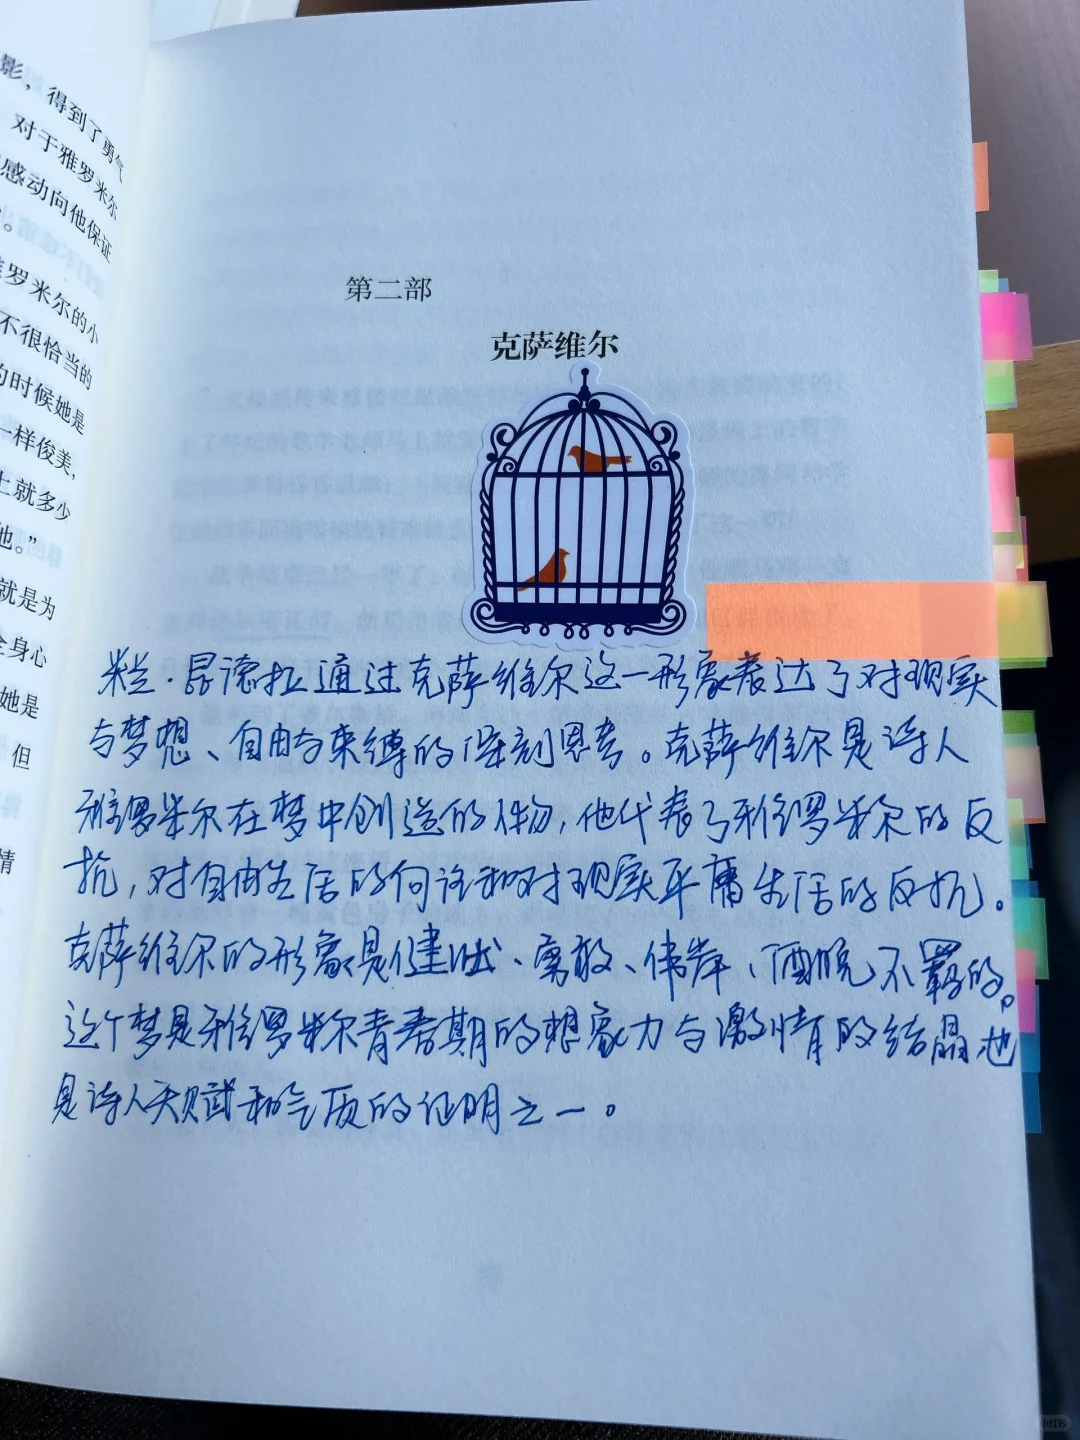 影，得到了勇气
对于雅罗米尔
感动向他保证
罗米尔的小
不很恰当的
的时候她是
一样俊美，
上就多少
他。”
就是为
全身心
她是
但
情
第二部
克萨维尔
米兰·昆德拉通过克萨维尔这一形象表达了对现实
与梦想、自由与束缚的深刻思考。克萨维尔是诗人
雅罗米尔在梦中创造的人物，他代表了雅罗米尔的反
抗，对自由生活的向往和对现实平庸生活的反抗。
克萨维尔的形象是健壮、勇敢、伟岸、洒脱不羁的。
这个梦是雅罗米尔青春期的想象力与激情的结晶也
是诗人天赋和气质的证明之一。
小红书